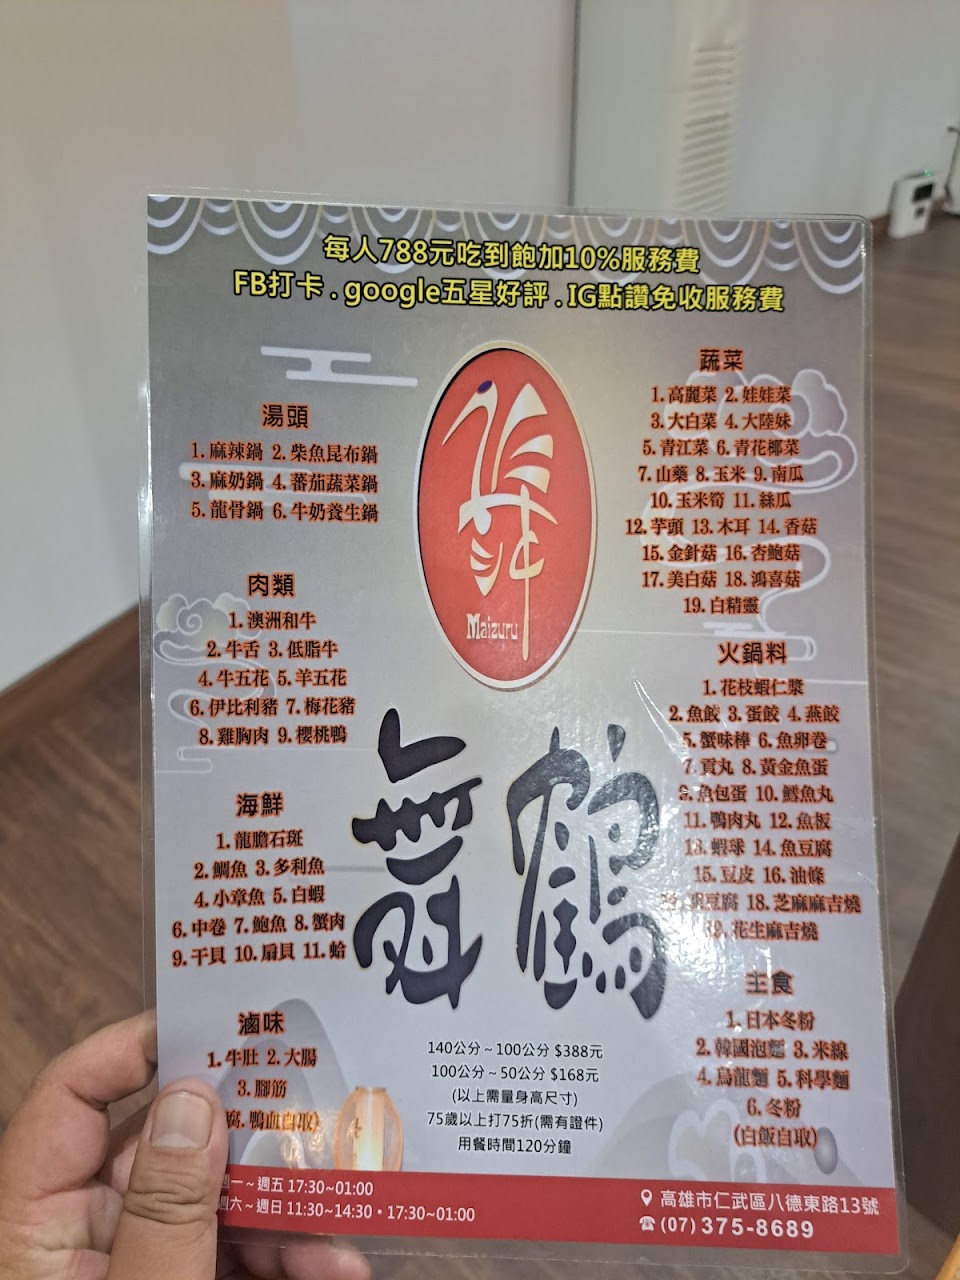 每人788元吃到飽加10%服務費
FB打卡.google五星好評.IG點讚免收服務費
湯頭
1.麻辣鍋 2.柴魚昆布鍋
3.麻奶鍋 4.蕃茄蔬菜鍋
5.龍骨鍋 6.牛奶養生鍋
肉類
1.澳洲和牛
2.牛舌 3.低脂牛
4.牛五花 5.羊五花
6.伊比利豬 7.梅花豬
8.雞胸肉 9.櫻桃鴨
海鮮
1.龍膽石斑
2.鯛魚 3.多利魚
4.小章魚 5.白蝦
6.中卷 7.鮑魚 8.蟹肉
9.干貝 10.扇貝 11.蛤
滷味
1.牛肚 2.大腸
3.腳筋
腐.鴨血自取)
Maizuru
舞鶴
140公分～100公分 $388元
100公分～50公分 $168元
(以上需量身高尺寸)
75歲以上打75折(需有證件)
用餐時間120分鐘
蔬菜
1.高麗菜 2.娃娃菜
3.大白菜 4.大陸妹
5.青江菜 6.青花椰菜
7.山藥 8.玉米 9.南瓜
10.玉米筍 11.絲瓜
12.芋頭 13.木耳 14.香菇
15.金針菇 16.杏鮑菇
17.美白菇 18.鴻喜菇
19.白精靈
火鍋料
1.花枝蝦仁漿
2.魚餃 3.蛋餃 4.燕餃
5.蟹味棒 6.魚卵卷
7.貢丸 8.黃金魚蛋
9.魚包蛋 10.鱈魚丸
11.鴨肉丸 12.魚板
13.蝦球 14.魚豆腐
15.豆皮 16.油條
豆腐 18.芝麻麻吉燒
19.花生麻吉燒
主食
1.日本冬粉
2.韓國泡麵 3.米線
4.烏龍麵 5.科學麵
6.冬粉
(白飯自取)
一～週五 17:30~01:00
週六～週日 11:30~14:30・17:30~01:00
高雄市仁武區八德東路13號
(07) 375-8689